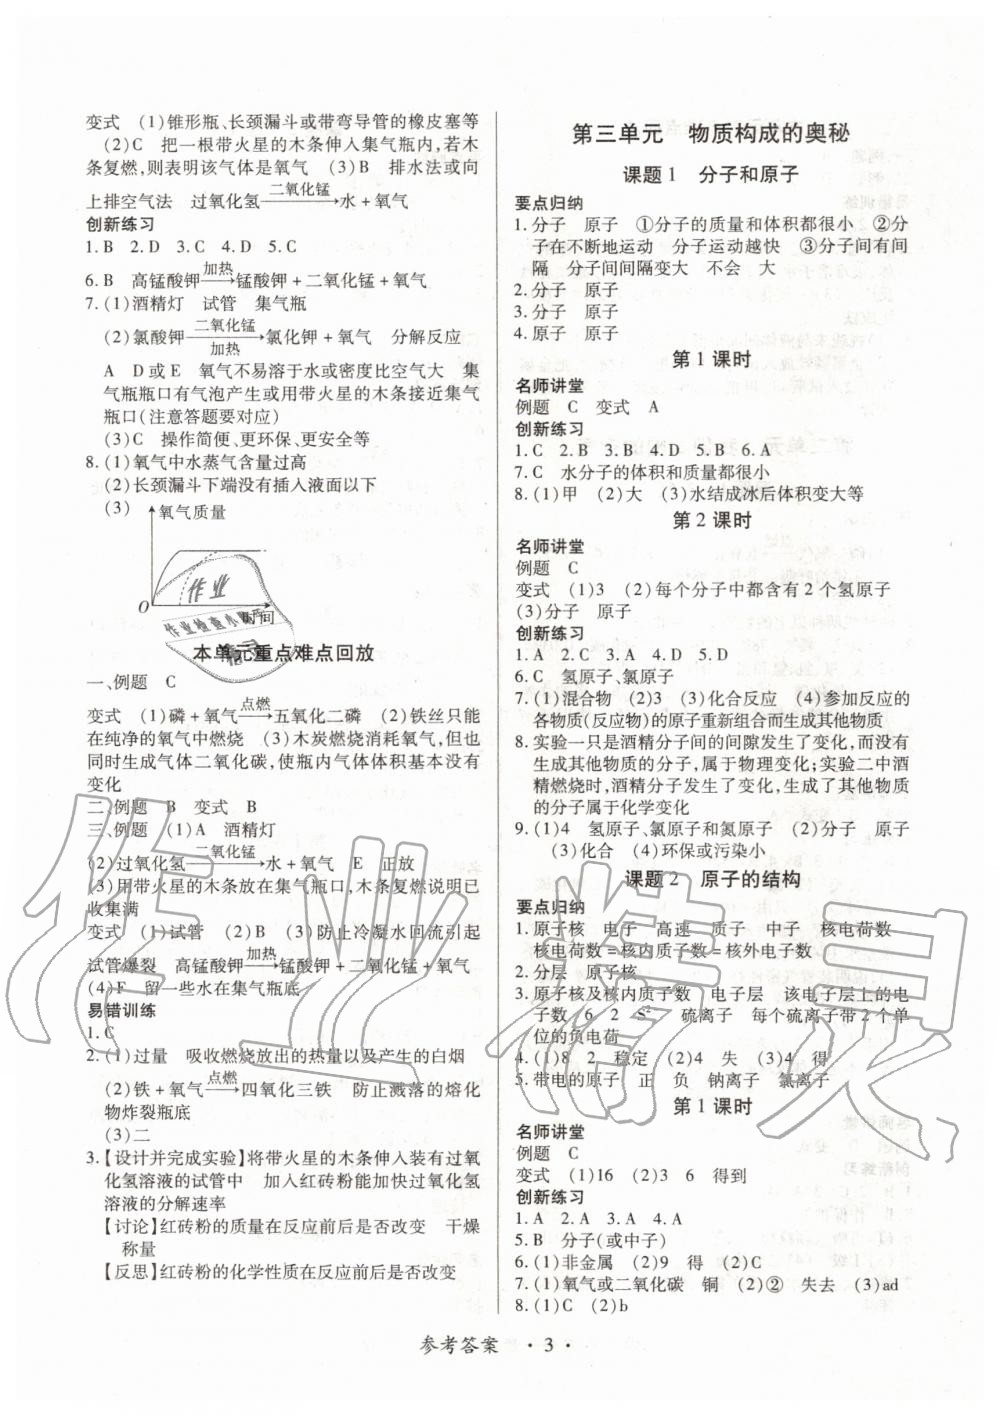 变式　(1)锥形瓶、长颈漏斗或带弯导管的橡皮塞等
(2)C　把一根带火星的木条伸入集气瓶内,若木
条复燃,则表明该气体是氧气　(3)B　排水法或向
上排空气法　过氧化氢 二氧化锰→ 水+氧气
创新练习
1.B　2.D　3.C　4.D　5.C
6.B　高锰酸钾 加热→ 锰酸钾+二氧化锰+氧气
7.(1)酒精灯　试管　集气瓶
(2)氯酸钾 二氧化锰→加热 氯化钾+氧气　分解反应
A　D或E　氧气不易溶于水或密度比空气大　集
气瓶瓶口有气泡产生或用带火星的木条接近集气
瓶口(注意答题要对应)
(3)C　操作简便、更环保、更安全等
8.(1)氧气中水蒸气含量过高
(2)长颈漏斗下端没有插入液面以下
(3)
氧气质量
O
时间
作业
作业检查小助手
精灵
本单元重点难点回放
一、例题　C
变式　(1)磷+氧气 点燃→ 五氧化二磷　(2)铁丝只能
在纯净的氧气中燃烧　(3)木炭燃烧消耗氧气,但也
同时生成气体二氧化碳,使瓶内气体体积基本没有
变化
二、例题　B　变式　B
三、例题　(1)A　酒精灯
(2)过氧化氢 二氧化锰→ 水+氧气　E　正放
(3)用带火星的木条放在集气瓶口,木条复燃说明已
收集满
变式　(1)试管　(2)B　(3)防止冷凝水回流引起
试管爆裂　高锰酸钾 加热→ 锰酸钾+二氧化锰+氧气
(4)F　留一些水在集气瓶底
易错训练
1.C
2.(1)过量　吸收燃烧放出的热量以及产生的白烟
(2)铁+氧气 点燃→ 四氧化三铁　防止溅落的熔化
物炸裂瓶底
(3)二
3.【设计并完成实验】将带火星的木条伸入装有过氧
化氢溶液的试管中　加入红砖粉能加快过氧化氢
溶液的分解速率
【讨论】红砖粉的质量在反应前后是否改变　干燥
称量
【反思】红砖粉的化学性质在反应前后是否改变
第三单元　物质构成的奥秘
课题1　分子和原子
要点归纳
1.分子　原子　①分子的质量和体积都很小　②分
子在不断地运动　分子运动越快　③分子间有间
隔　分子间间隔变大　不会　大
2.分子　原子
3.分子　原子
4.原子　原子
第1课时
名师讲堂
例题　C　变式　A
创新练习
1.C　2.B　3.B　4.D　5.B　6.A
7.C　水分子的体积和质量都很小
8.(1)甲　(2)大　(3)水结成冰后体积变大等
第2课时
名师讲堂
例题　C
变式　(1)3　(2)每个分子中都含有2个氢原子
(3)分子　原子
创新练习
1.A　2.C　3.A　4.D　5.D
6.C　氢原子、氯原子
7.(1)混合物　(2)3　(3)化合反应　(4)参加反应的
各物质(反应物)的原子重新组合而生成其他物质
8.实验一只是酒精分子间的间隙发生了变化,而没有
生成其他物质的分子,属于物理变化;实验二中酒
精燃烧时,酒精分子发生了变化,生成了其他物质
的分子属于化学变化
9.(1)4　氢原子、氯原子和氮原子　(2)分子　原子
(3)化合　(4)环保或污染小
课题2　原子的结构
要点归纳
1.原子核　电子　高速　质子　中子　核电荷数
核电荷数=核内质子数=核外电子数
2.分层　原子核
3.原子核及核内质子数　电子层　该电子层上的电
子数　6　2　S²⁻　硫离子　每个硫离子带2个单
位的负电荷
4.(1)8　2　稳定　(2)4　失　(3)4　得
5.带电的原子　正　负　钠离子　氯离子
第1课时
名师讲堂
例题　C
变式　(1)16　(2)3　6　得到
创新练习
1.A　2.A　3.A　4.A
5.B　分子(或中子)
6.(1)非金属　(2)9　得　(2)C
7.(1)氧气或二氧化碳　铜　(2)②　失去　(3)ad
8.(1)C　(2)b
参考答案 · 3 ·
作业精灵